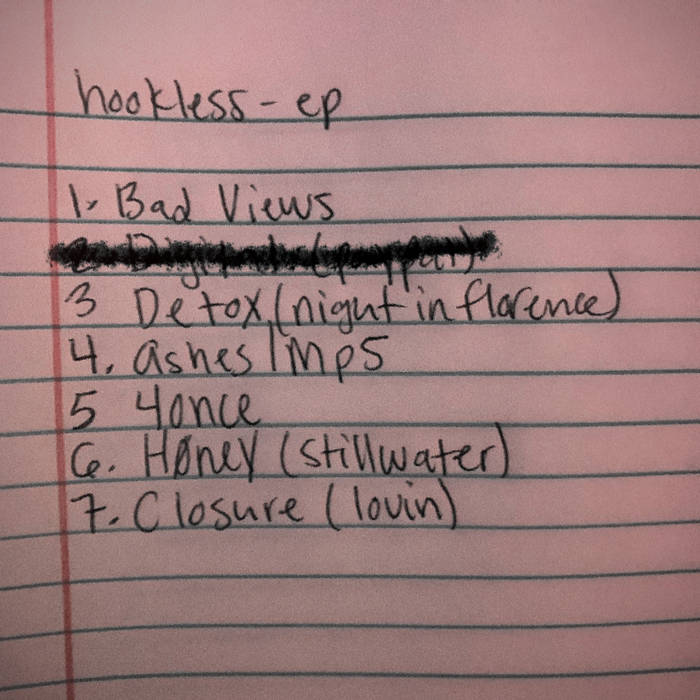 hookless - ep
1. Bad Views
3 Detox, (night in florence)
4. ashes | mp5
5 4once
6. Høney (stillwater)
7. Closure (lovin)